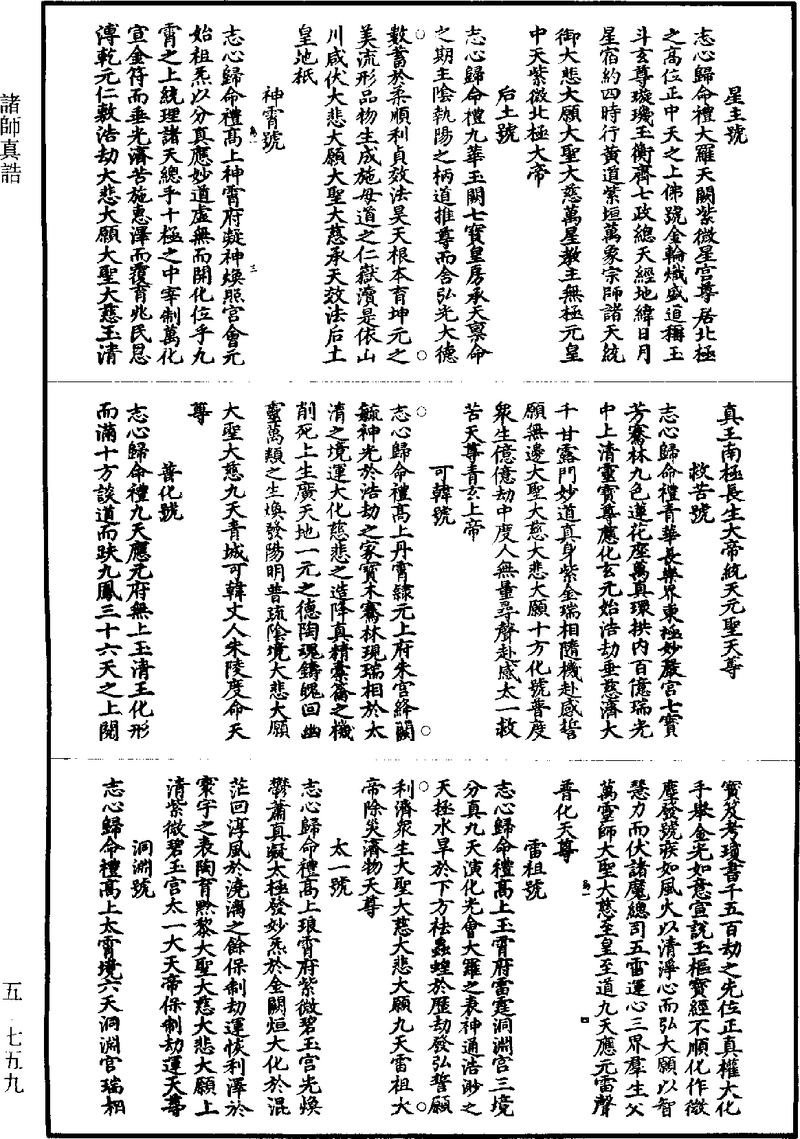 諸師真誥
星主號
志心歸命禮大羅天闕紫微星宮尊居北極
之高位正中天之上佛號金輪熾盛道稱玉
斗玄尊璇璣玉衡齊七政總天經地緯日月
星宿約四時行黃道紫垣萬象宗師諸天統
御大悲大願大聖大慈萬星教主無極元皇
中天紫微北極大帝
后土號
志心歸命禮九華玉闕七寶皇房承天禀命
之期主陰執陽之柄道推尊而含弘光大德
數蓄於柔順利貞效法昊天根本育坤元之
美流形品物生成施母道之仁嶽瀆是依山
川咸伏大悲大願大聖大慈承天效法后土
皇地祇
神霄號
志心歸命禮高上神霄府凝神煥照宮會元
始祖炁以分真應妙道虛無而開化位乎九
霄之上統理諸天總乎十極之中宰制萬化
宣金符而垂光濟苦施惠澤而覆育兆民恩
溥乾元仁敷浩劫大悲大願大聖大慈玉清
三
真王南極長生大帝統天元聖天尊
救苦號
志心歸命禮青華長樂界東極妙嚴宮七寶
芳騫林九色蓮花座萬真環拱內百億瑞光
中上清靈寶尊應化玄元始浩劫垂慈濟大
千甘露門妙道真身紫金瑞相隨機赴感誓
願無邊大聖大慈大悲大願十方化號普度
眾生億億劫中度人無量尋聲赴感太一救
苦天尊青玄上帝
可韓號
志心歸命禮高上丹霄隸元上府朱宮絳闕
毓神光於浩劫之家寶木騫林現瑞相於太
清之境運大化慈悲之造降真精橐籥之機
削死上生廣天地一元之德陶魂鑄魄回幽
靈萬類之生煥發陽明普疏陰境大悲大願
大聖大慈九天青城可韓丈人朱陵度命天
尊
普化號
志心歸命禮九天應元府無上玉清王化形
而滿十方談道而趺九鳳三十六天之上閱
寶笈考瓊書千五百劫之先位正真權大化
手舉金光如意宣說玉樞寶經不順化作微
塵發號疾如風火以清淨心而弘大願以智
慧力而伏諸魔總司五雷運心三界群生父
萬靈師大聖大慈至皇至道九天應元雷聲
普化天尊
四
雷祖號
志心歸命禮高上玉霄府雷霆洞淵宮三境
分真九天演化光會大羅之表神通浩渺之
天極水旱於下方祛蟲蝗於歷劫發弘誓願
利濟眾生大聖大慈大悲大願九天雷祖大
帝除災濟物天尊
太一號
志心歸命禮高上琅霄府紫微碧玉宮光煥
鬱蕭真凝太極發妙炁於金闕烜大化於混
茫回淳風於澆漓之餘保制劫運恢利澤於
寰宇之表陶育黔黎大聖大慈大悲大願上
清紫微碧玉宮太一大天帝保制劫運天尊
洞淵號
志心歸命禮高上太霄境六天洞淵宮瑞相
五
七五九